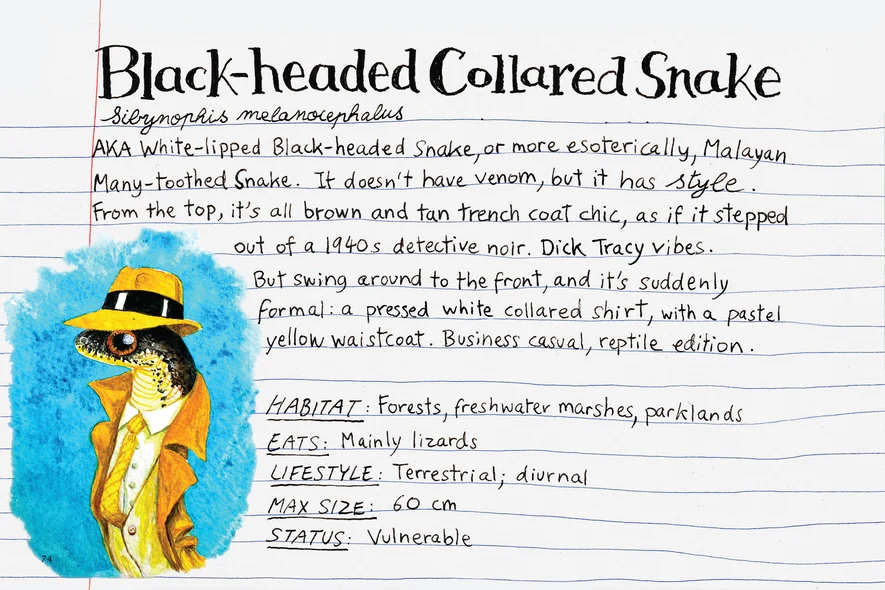 Black-headed Collared Snake
Sibynophis melanocephalus
AKA White-lipped Black-headed Snake, or more esoterically, Malayan
Many-toothed Snake. It doesn't have venom, but it has style.
From the top, it's all brown and tan trench coat chic, as if it stepped
out of a 1940s detective noir. Dick Tracy vibes.
But swing around to the front, and it's suddenly
formal: a pressed white collared shirt, with a pastel
yellow waistcoat. Business casual, reptile edition.
HABITAT: Forests, freshwater marshes, parklands
EATS: Mainly lizards
LIFESTYLE: Terrestrial; diurnal
MAX SIZE: 60 cm
STATUS: Vulnerable
74